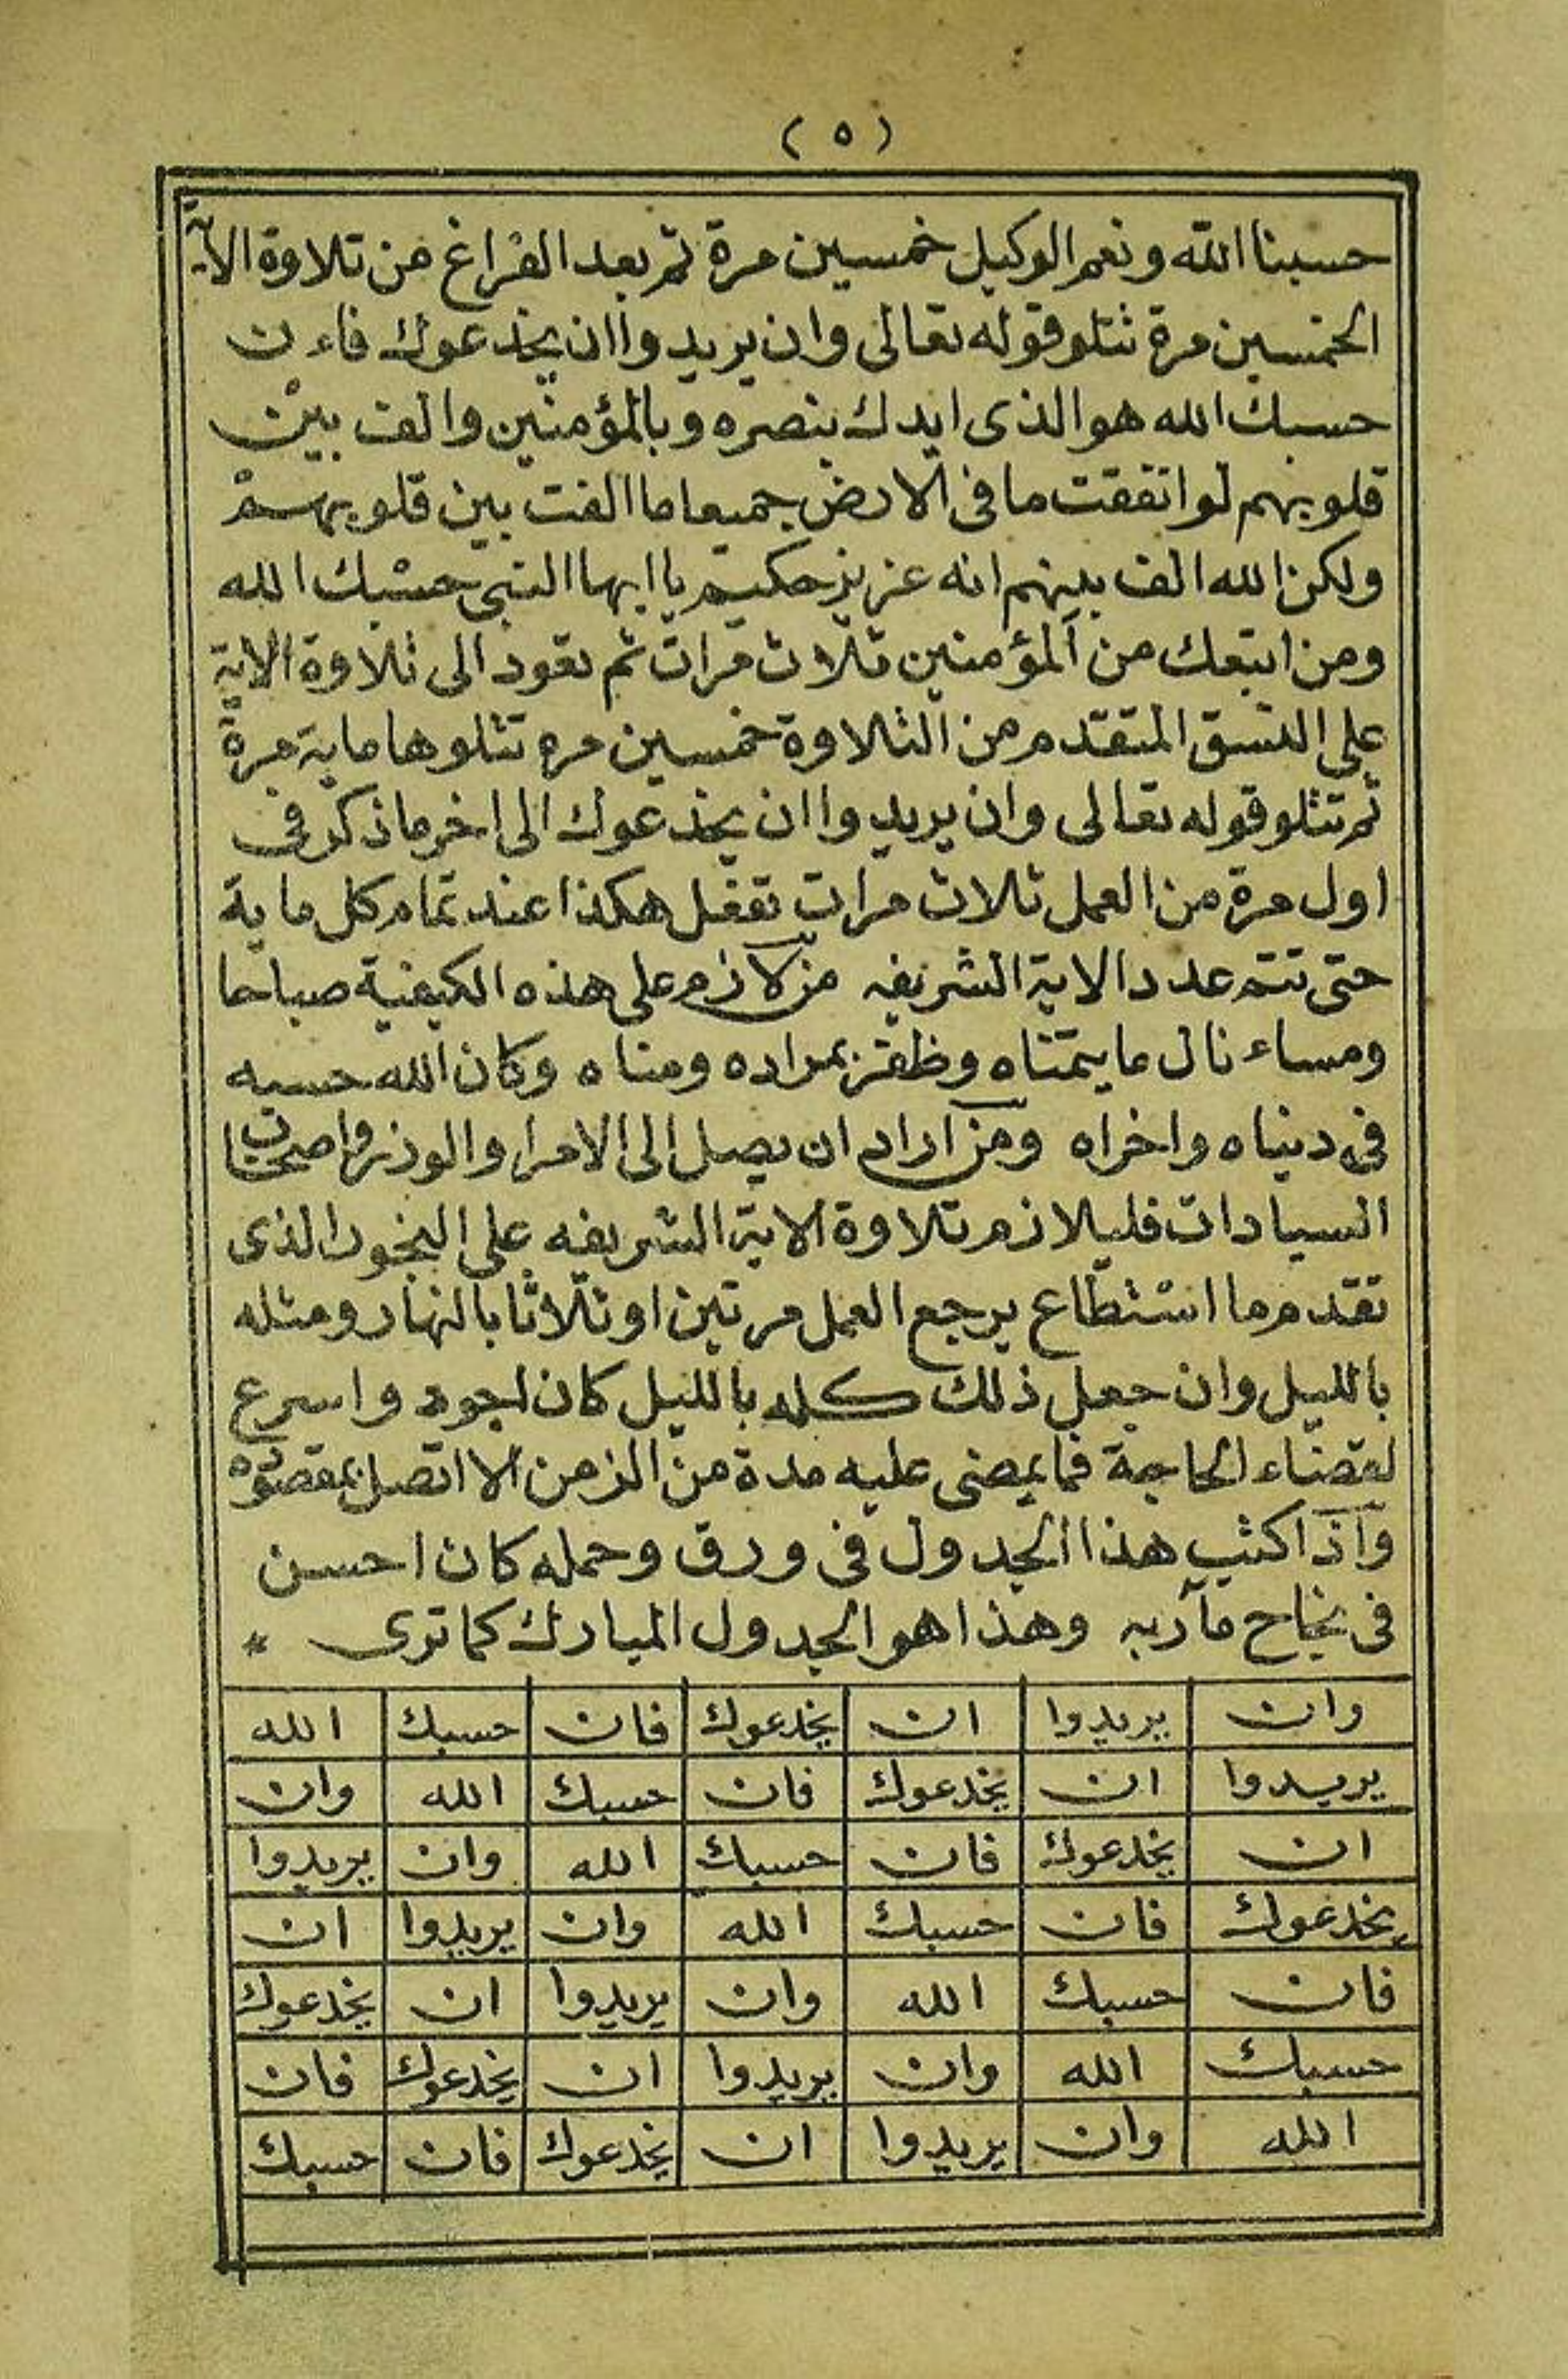 ( ٥ )
حسبنا الله ونعم الوكيل خمسين مرة ثم بعد الفراغ من تلاوة الآية
الخمسين مرة تتلو قوله تعالى وان يريدوا ان يخدعوك فاءن
حسبك الله هو الذى ايدك بنصره وبالمؤمنين والف بين
قلوبهم لو انفقت ما فى الارض جميعا ما الفت بين قلوبهم
ولكن الله الف بينهم انه عزيز حكيم يا ايها النبى حسبك الله
ومن اتبعك من المؤمنين ثلاث مرات ثم تعود الى تلاوة الاية
على النسق المتقدم من التلاوة خمسين مره تتلوها ماية مرة
ثم تتلو قوله تعالى وان يريدوا ان يخدعوك الى اخر ما ذكر فى
اول مرة من العمل ثلاث مرات تفعل هكذا عند تمام كل ماية
حتى تتم عدد الاية الشريفه من لازم على هذه الكيفية صباحا
ومساء نال ما يتمناه وظفر بمراده ومناه وكان الله حسبه
فى دنياه واخراه ومن اراد ان يصل الى الامرا والوزر واصحاب
السيادات فليلازم تلاوة الاية الشريفه على البخور الذى
تقدم ما استطاع يرجع العمل مرتين او ثلاثا بالنهار ومثله
بالليل وان جعل ذلك كله بالليل كان اجود واسرع
لقضاء الحاجة فما يمضى عليه مدة من الزمن الا اتصل بمقصوده
واذا كتب هذا الجدول فى ورق وحمله كان احسن
فى نجاح مآربه وهذا هو الجدول المبارك كما ترى *
وان يريدوا ان يخدعوك فان حسبك الله
يريدوا ان يخدعوك فان حسبك الله وان
ان يخدعوك فان حسبك الله وان يريدوا
يخدعوك فان حسبك الله وان يريدوا ان
فان حسبك الله وان يريدوا ان يخدعوك
حسبك الله وان يريدوا ان يخدعوك فان
الله وان يريدوا ان يخدعوك فان حسبك